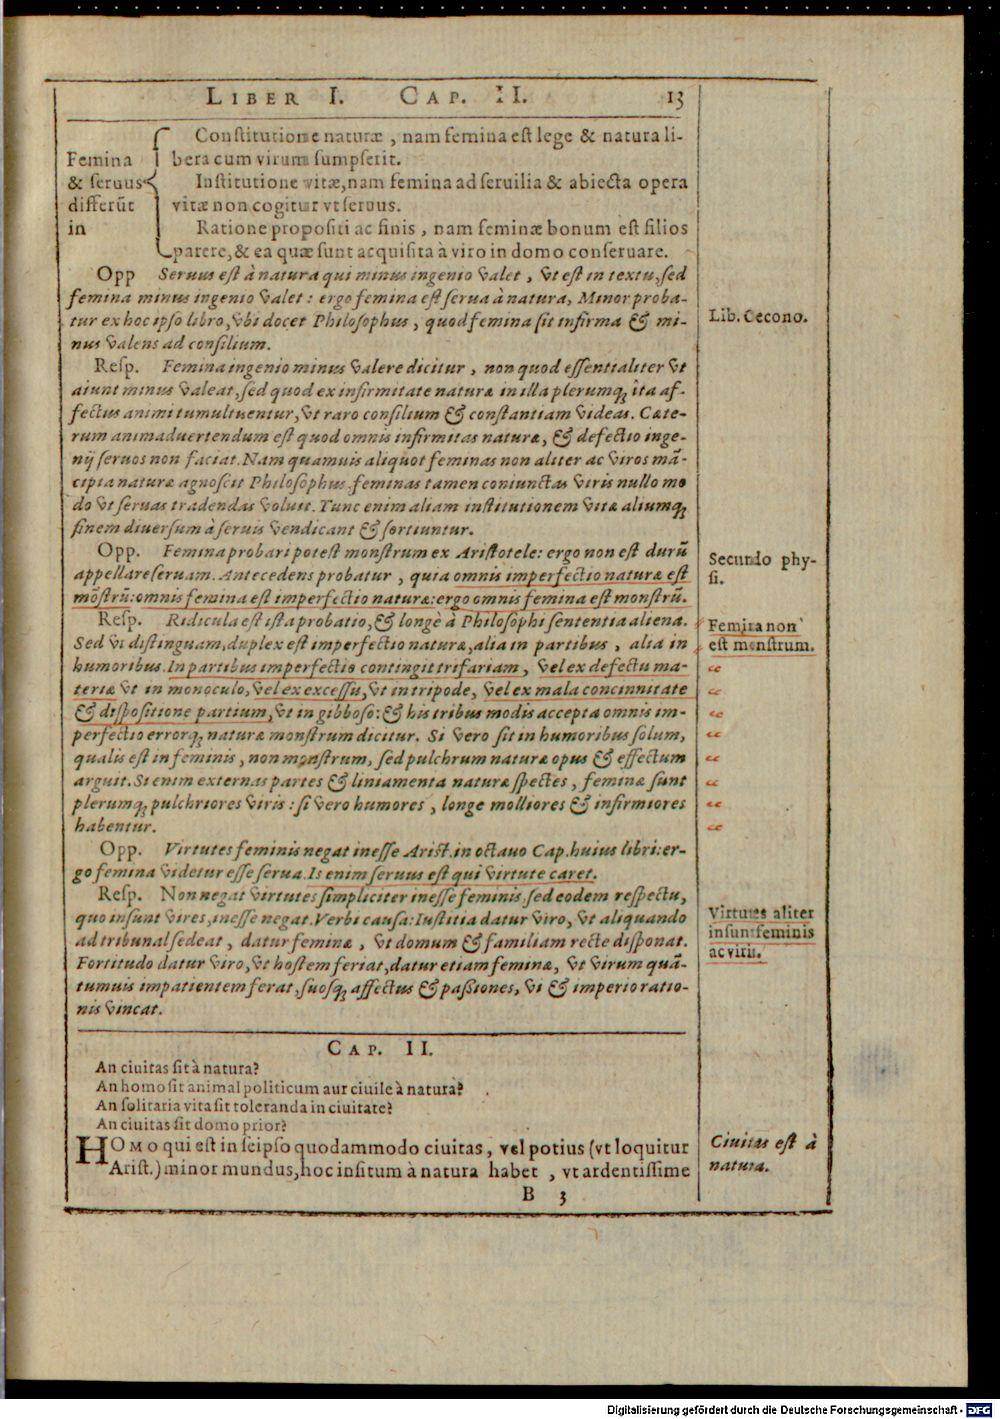 LIBER I. CAP. II. 13
Constitutione naturæ, nam femina est lege & natura li-
Femina bera cum virum sumpserit.
& seruus Institutione vitæ, nam femina ad seruilia & abiecta opera
differũt vitæ non cogitur vt seruus.
in Ratione propositi ac finis, nam feminæ bonum est filios
parere, & ea quæ sunt acquisita à viro in domo conseruare.
Opp Seruus est à natura qui minus ingenio valet, vt est in textu, sed
femina minus ingenio valet: ergo femina est serua à natura, Minor proba-
tur ex hoc ipso libro, vbi docet Philosophus, quod femina sit infirma & mi-
Lib. Oecono.
nus valens ad consilium.
Resp. Femina ingenio minus valere dicitur, non quod essentialiter vt
aiunt minus valeat, sed quod ex infirmitate naturæ in illa plerumq; ita af-
fectus animi tumultuentur, vt raro consilium & constantiam videas. Cæte-
rum animaduertendum est quod omnis infirmitas naturæ, & defectio inge-
nij seruos non faciat. Nam quamuis aliquot feminas non aliter ac viros mã-
cipia naturæ agnoscit Philosophus, feminas tamen coniunctas viris nullo mo
do vt seruas tradendas voluit. Tunc enim aliam institutionem vitæ aliumq;
finem diuersum à seruis vendicant & sortiuntur.
Opp. Femina probari potest monstrum ex Aristotele: ergo non est durũ
Secundo phy-
appellare seruam. Antecedens probatur, quia omnis imperfectio naturæ est
si.
mõstrũ: omnis femina est imperfectio naturæ: ergo omnis femina est monstrũ.
Resp. Ridicula est ista probatio, & longè à Philosophi sententia aliena.
Femina non
Sed vi distinguam, duplex est imperfectio naturæ, alia in partibus, alia in
est monstrum.
humoribus. In partibus imperfectio contingit trifariam, vel ex defectu ma-
teriæ vt in monoculo, vel ex excessu, vt in tripode, vel ex mala concinnitate
& dispositione partium, vt in gibboso: & his tribus modis accepta omnis im-
perfectio errorq; naturæ monstrum dicitur. Si vero sit in humoribus solum,
qualis est in feminis, non monstrum, sed pulchrum naturæ opus & effectum
arguit. Si enim externas partes & liniamenta naturæ spectes, feminæ sunt
plerumq; pulchriores viris: si vero humores, longe molliores & infirmiores
habentur.
Opp. Virtutes feminis negat inesse Arist. in octauo Cap. huius libri: er-
go femina videtur esse serua. Is enim seruus est qui virtute caret.
Resp. Non negat virtutes simpliciter inesse feminis, sed eodem respectu,
quo insunt vires, inesse negat. Verbi causa: Iustitia datur viro, vt aliquando
Virtutes aliter
ad tribunal sedeat, datur feminæ, vt domum & familiam recte disponat.
insunt feminis
Fortitudo datur viro, vt hostem feriat, datur etiam feminæ, vt virum quã-
ac viris.
tumuis impatientem ferat, suosq; affectus & passiones, vi & imperio ratio-
nis vincat.
CAP. II.
An ciuitas sit à natura?
An homo sit animal politicum aut ciuile à natura?
An solitaria vita sit toleranda in ciuitate?
An ciuitas sit domo prior?
HOMO qui est in seipso quodammodo ciuitas, vel potius (vt loquitur
Ciuitas est à
Arist.) minor mundus, hoc insitum à natura habet, vt ardentissime
natura.
B 3
Digitalisierung gefördert durch die Deutsche Forschungsgemeinschaft - DFG